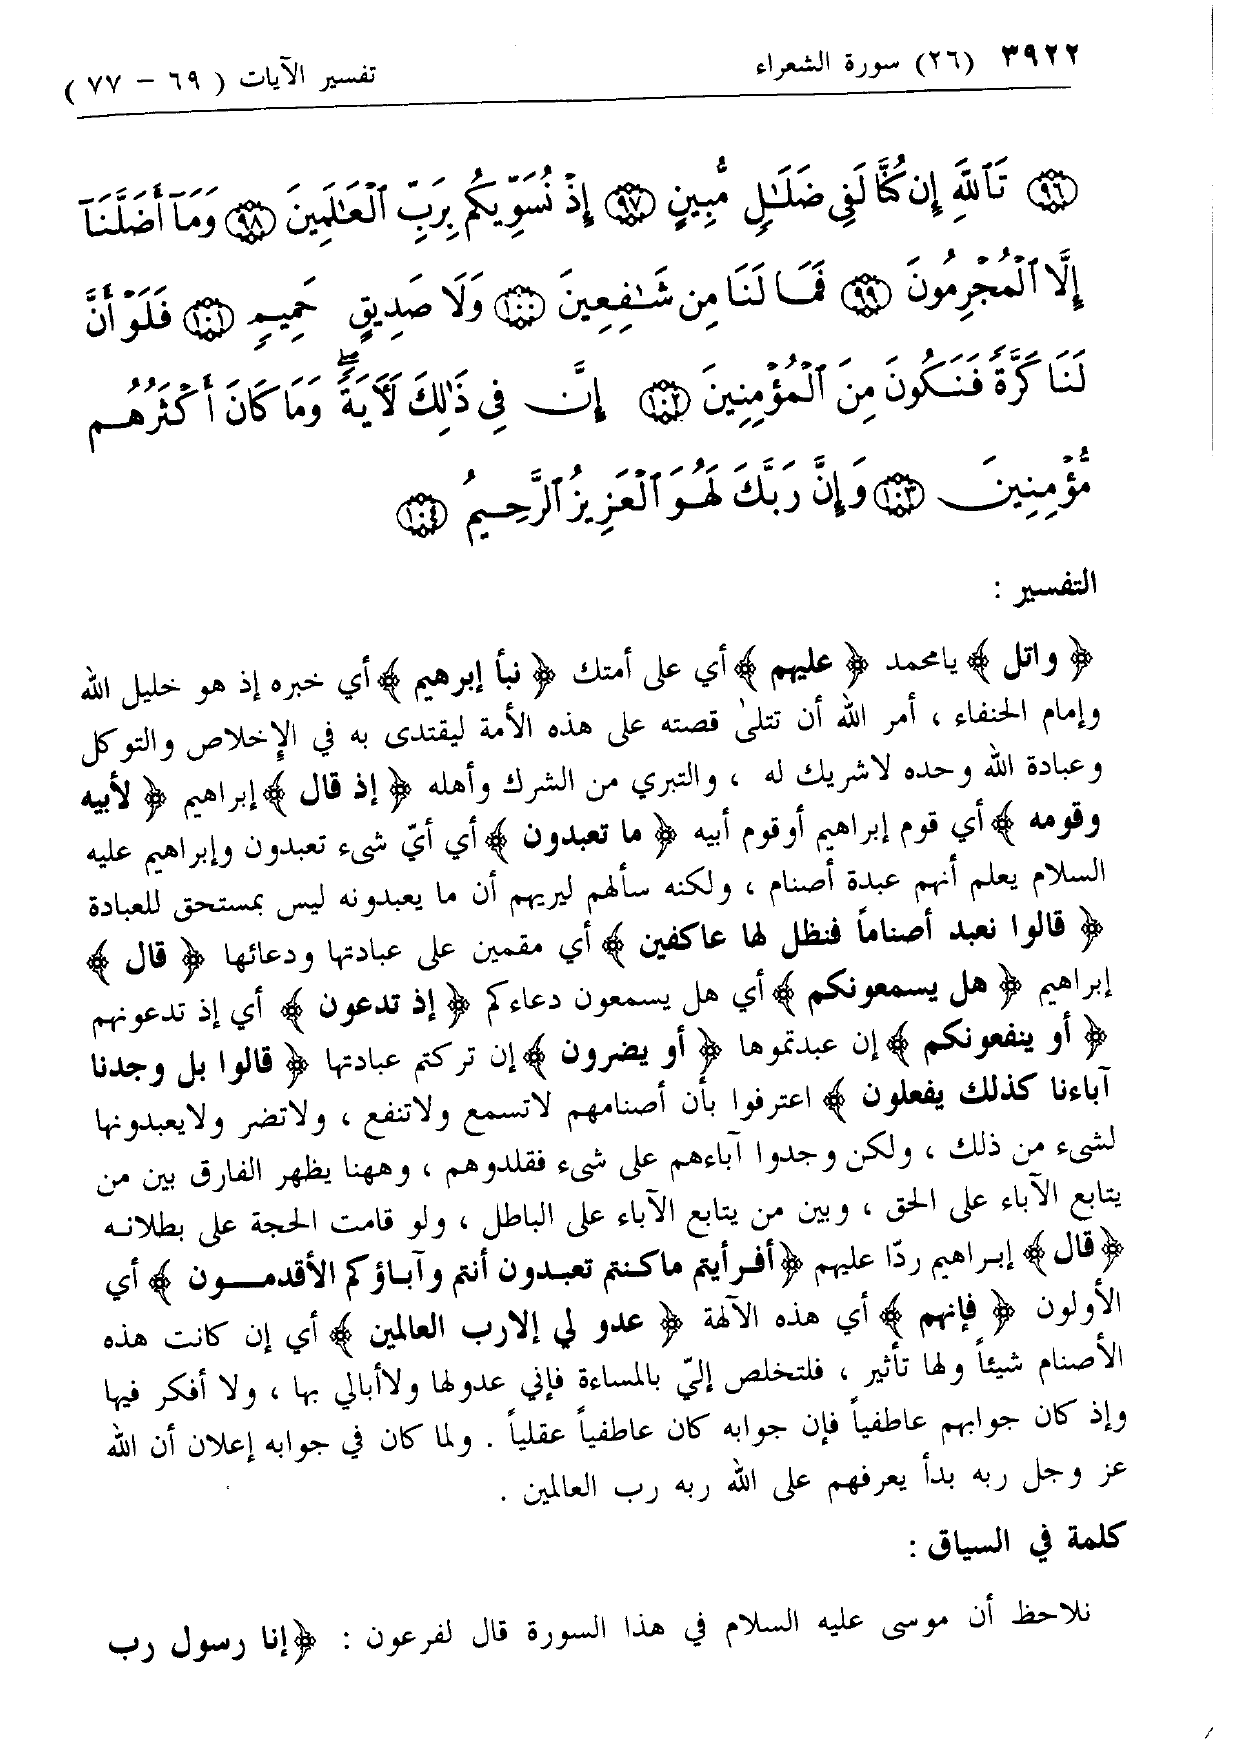 ٣٩٢٢ (٢٦) سورة الشعراء تفسير الآيات ( ٦٩ – ٧٧ )
﴿٩٦﴾ تَٱللَّهِ إِن كُنَّا لَفِى ضَلَـٰلٍ مُّبِينٍ ﴿٩٧﴾ إِذْ نُسَوِّيكُم بِرَبِّ ٱلْعَـٰلَمِينَ ﴿٩٨﴾ وَمَآ أَضَلَّنَآ
إِلَّا ٱلْمُجْرِمُونَ ﴿٩٩﴾ فَمَا لَنَا مِن شَـٰفِعِينَ ﴿١٠٠﴾ وَلَا صَدِيقٍ حَمِيمٍ ﴿١٠١﴾ فَلَوْ أَنَّ
لَنَا كَرَّةً فَنَكُونَ مِنَ ٱلْمُؤْمِنِينَ ﴿١٠٢﴾ إِنَّ فِى ذَٰلِكَ لَأَيَةً ۖ وَمَا كَانَ أَكْثَرُهُم
مُّؤْمِنِينَ ﴿١٠٣﴾ وَإِنَّ رَبَّكَ لَهُوَ ٱلْعَزِيزُ ٱلرَّحِيمُ ﴿١٠٤﴾
التفسير :
﴿ واتل ﴾ يامحمد ﴿ عليهم ﴾ أي على أمتك ﴿ نبأ إبرهيم ﴾ أي خبره إذ هو خليل الله
وإمام الحنفاء ، أمر الله أن تتلىٰ قصته على هذه الأمة ليقتدى به في الإخلاص والتوكل
وعبادة الله وحده لاشريك له ، والتبري من الشرك وأهله ﴿ إذ قال ﴾ إبراهيم ﴿ لأبيه
وقومه ﴾ أي قوم إبراهيم أوقوم أبيه ﴿ ما تعبدون ﴾ أي أيّ شىء تعبدون وإبراهيم عليه
السلام يعلم أنهم عبدة أصنام ، ولكنه سألهم ليريهم أن ما يعبدونه ليس بمستحق للعبادة
﴿ قالوا نعبد أصناماً فنظل لها عاكفين ﴾ أي مقمين على عبادتها ودعائها ﴿ قال ﴾
إبراهيم ﴿ هل يسمعونكم ﴾ أي هل يسمعون دعاءكم ﴿ إذ تدعون ﴾ أي إذ تدعونهم
﴿ أو ينفعونكم ﴾ إن عبدتموها ﴿ أو يضرون ﴾ إن تركتم عبادتها ﴿ قالوا بل وجدنا
آباءنا كذلك يفعلون ﴾ اعترفوا بأن أصنامهم لاتسمع ولاتنفع ، ولاتضر ولايعبدونها
لشىء من ذلك ، ولكن وجدوا آباءهم على شىء فقلدوهم ، وههنا يظهر الفارق بين من
يتابع الآباء على الحق ، وبين من يتابع الآباء على الباطل ، ولو قامت الحجة على بطلانه
﴿قال﴾ إبراهيم ردّا عليهم ﴿أفرأيتم ماكنتم تعبدون أنتم وآباؤكم الأقدمون ﴾ أي
الأولون ﴿ فإنهم ﴾ أي هذه الآلهة ﴿ عدو لي إلارب العالمين ﴾ أي إن كانت هذه
الأصنام شيئاً ولها تأثير ، فلتخلص إليّ بالمساءة فإني عدولها ولاأبالي بها ، ولا أفكر فيها
وإذ كان جوابهم عاطفياً فإن جوابه كان عاطفياً عقلياً . ولما كان في جوابه إعلان أن الله
عز وجل ربه بدأ يعرفهم على الله ربه رب العالمين .
كلمة في السياق :
نلاحظ أن موسى عليه السلام في هذا السورة قال لفرعون : ﴿إنا رسول رب